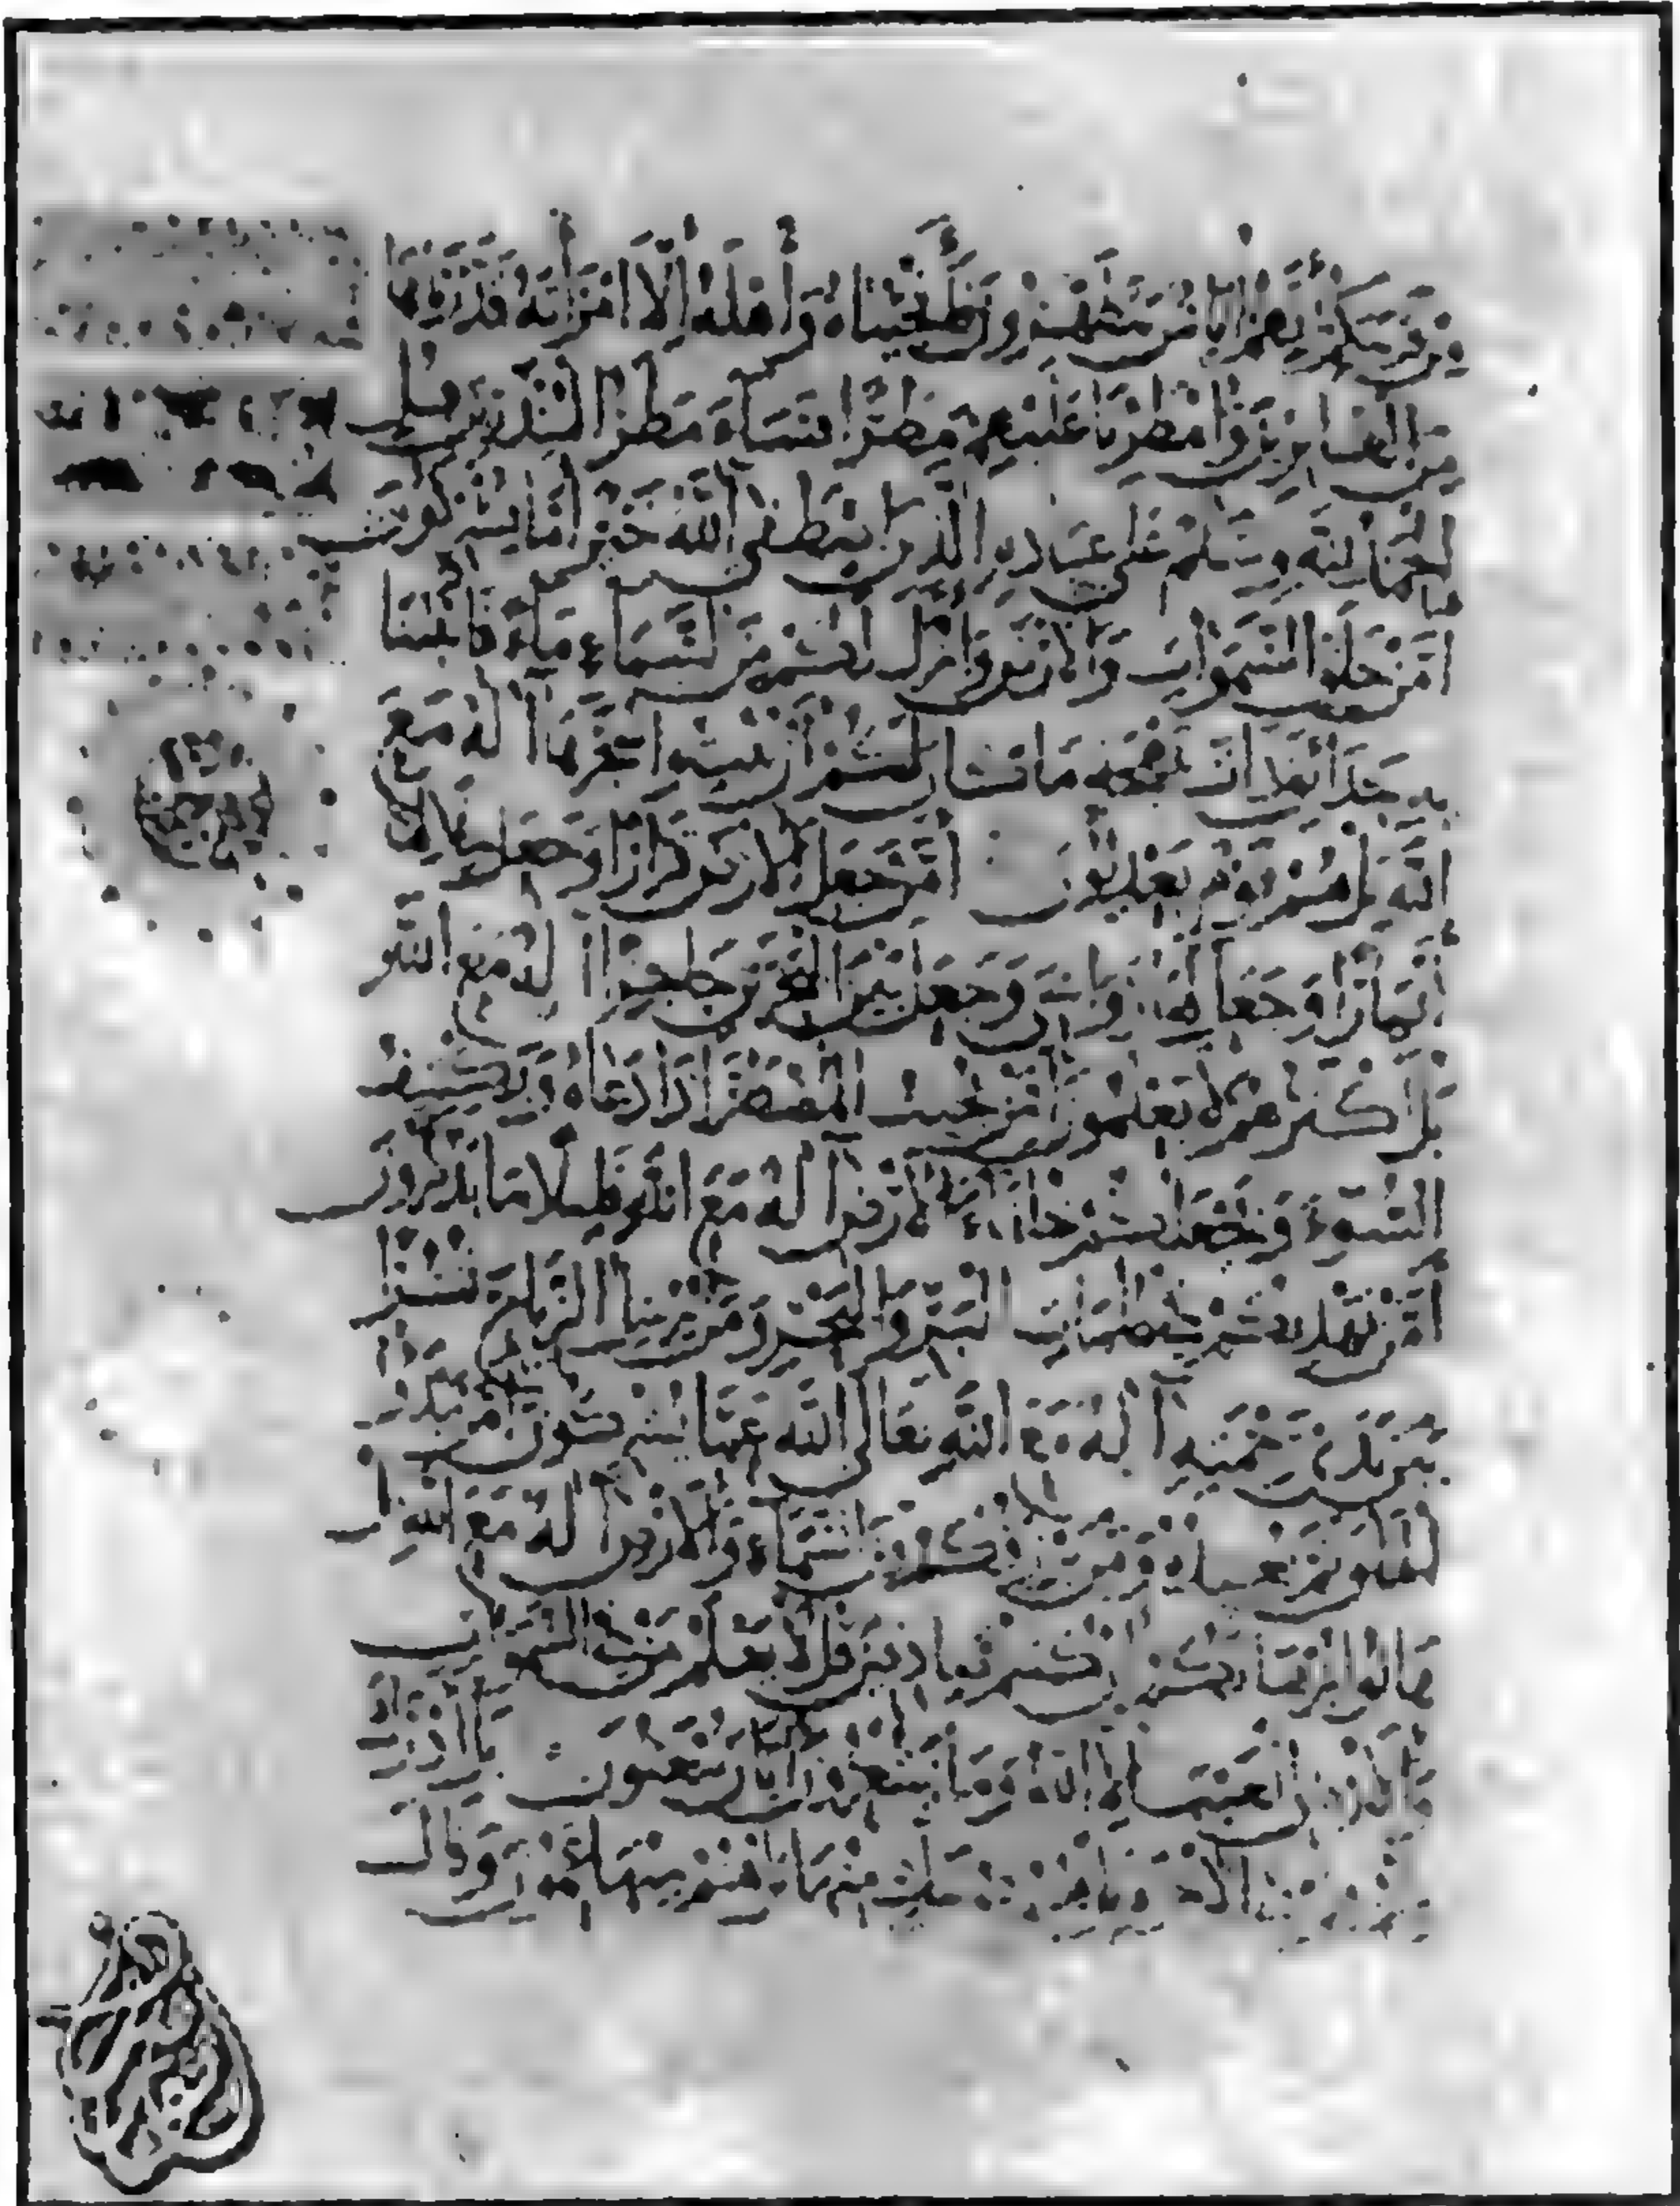 من قريتكم إنهم أناس يتطهرون فأنجيناه وأهله إلا امرأته قدرناها
من الغابرين وأمطرنا عليهم مطرا فساء مطر المنذرين قل
الحمد لله وسلام على عباده الذين اصطفى آلله خير أما يشركون
أمن خلق السموات والأرض وأنزل لكم من السماء ماء فأنبتنا
به حدائق ذات بهجة ما كان لكم أن تنبتوا شجرها أإله مع
الله بل هم قوم يعدلون أمن جعل الأرض قرارا وجعل خلالها
أنهارا وجعل لها رواسي وجعل بين البحرين حاجزا أإله مع الله
بل أكثرهم لا يعلمون أمن يجيب المضطر إذا دعاه ويكشف
السوء ويجعلكم خلفاء الأرض أإله مع الله قليلا ما تذكرون
أمن يهديكم في ظلمات البر والبحر ومن يرسل الرياح نشرا
بين يدي رحمته أإله مع الله تعالى الله عما يشركون أمن يبدؤ
الخلق ثم يعيده ومن يرزقكم من السماء والأرض أإله مع الله قل
هاتوا برهانكم إن كنتم صادقين قل لا يعلم من في السموات
والأرض الغيب إلا الله وما يشعرون أيان يبعثون بل ادارك
علمهم في الآخرة بل هم في شك منها بل هم منها عمون وقال